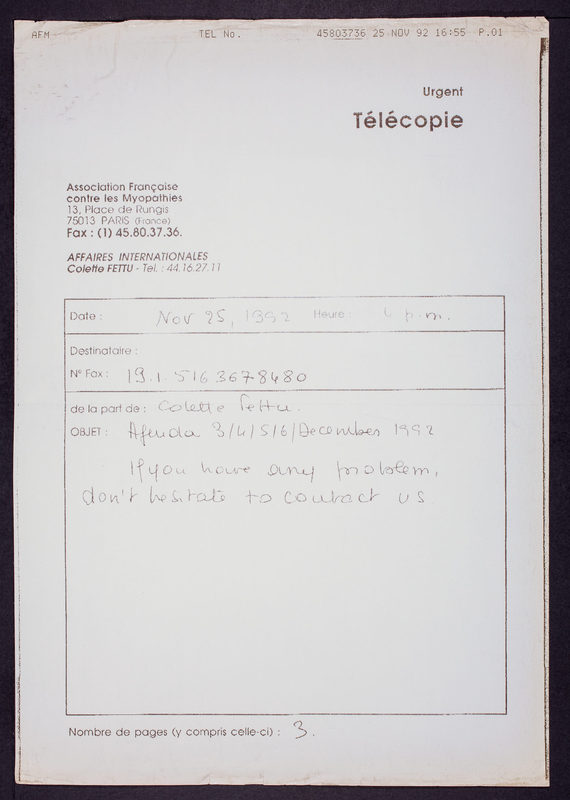 AFM TEL No. 45803736 25 NOV 92 16:55 P.01
Urgent
Télécopie
Association Française
contre les Myopathies
13, Place de Rungis
75013 PARIS (France)
Fax : (1) 45.80.37.36.
AFFAIRES INTERNATIONALES
Colette FETTU - Tel. : 44.16.27.11
Date : Nov 25, 1992 Heure : 4 p.m.
Destinataire :
N° Fax : 19.1.516 3678480
de la part de : Colette Fettu.
OBJET : Agenda 3/4/5/6/December 1992
If you have any problem,
don't hesitate to contact us.
Nombre de pages (y compris celle-ci) : 3.